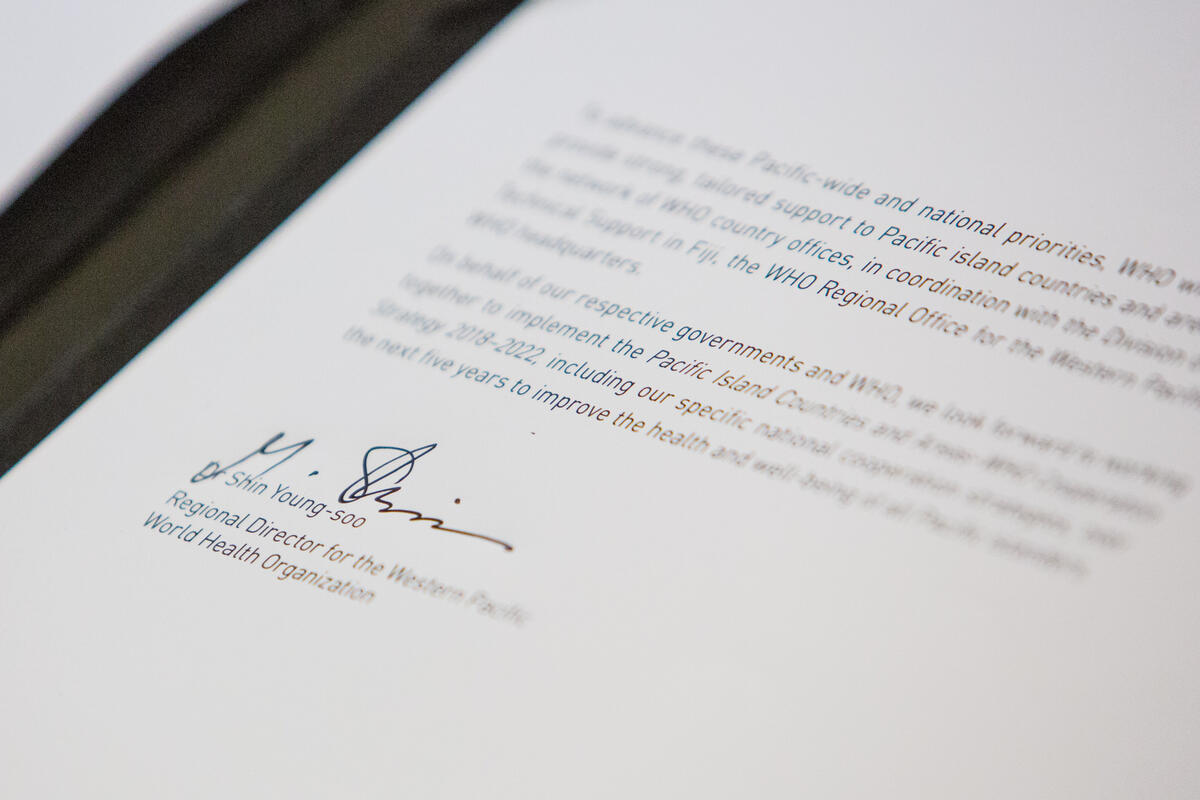 To advance these Pacific-wide and national priorities, WHO
provide strong, tailored support to Pacific island countries and
the network of WHO country offices, in coordination with the Division
Technical Support in Fiji, the WHO Regional Office for the Western Pacific
WHO headquarters.
On behalf of our respective governments and WHO, we look forward to working
together to implement the Pacific Island Countries and Areas–WHO Cooperation
Strategy 2018–2022, including our specific national cooperation strategies, over
the next five years to improve the health and well-being of all Pacific islanders.
Y. Shin
Dr Shin Young-soo
Regional Director for the Western Pacific
World Health Organization